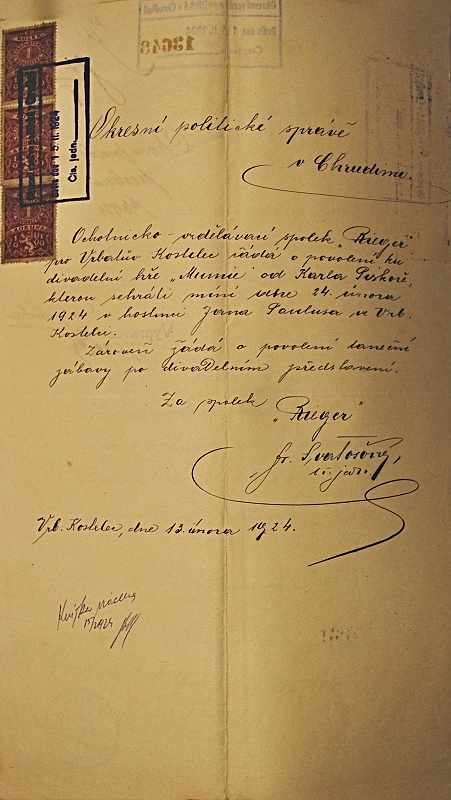 Okresní politické správě
v Chrudimi.
Ochotnicko-vzdělávací spolek „Rieger"
pro Vrbatův Kostelec žádá o povolení ku
divadelní hře „Mumie" od Karla
kterou sehráti míní dne 24. února
1924 v hostinci Jana Paulusa ve Vrb.
Kostelci.
Zároveň žádá o povolení taneční
zábavy po divadelním představení.
Za spolek
„Rieger"
Fr.
t.č. jedn.
Vrb. Kostelec, dne 13. února 1924.
13648
Čís. jedn.
KOLEK
1
KORUNA